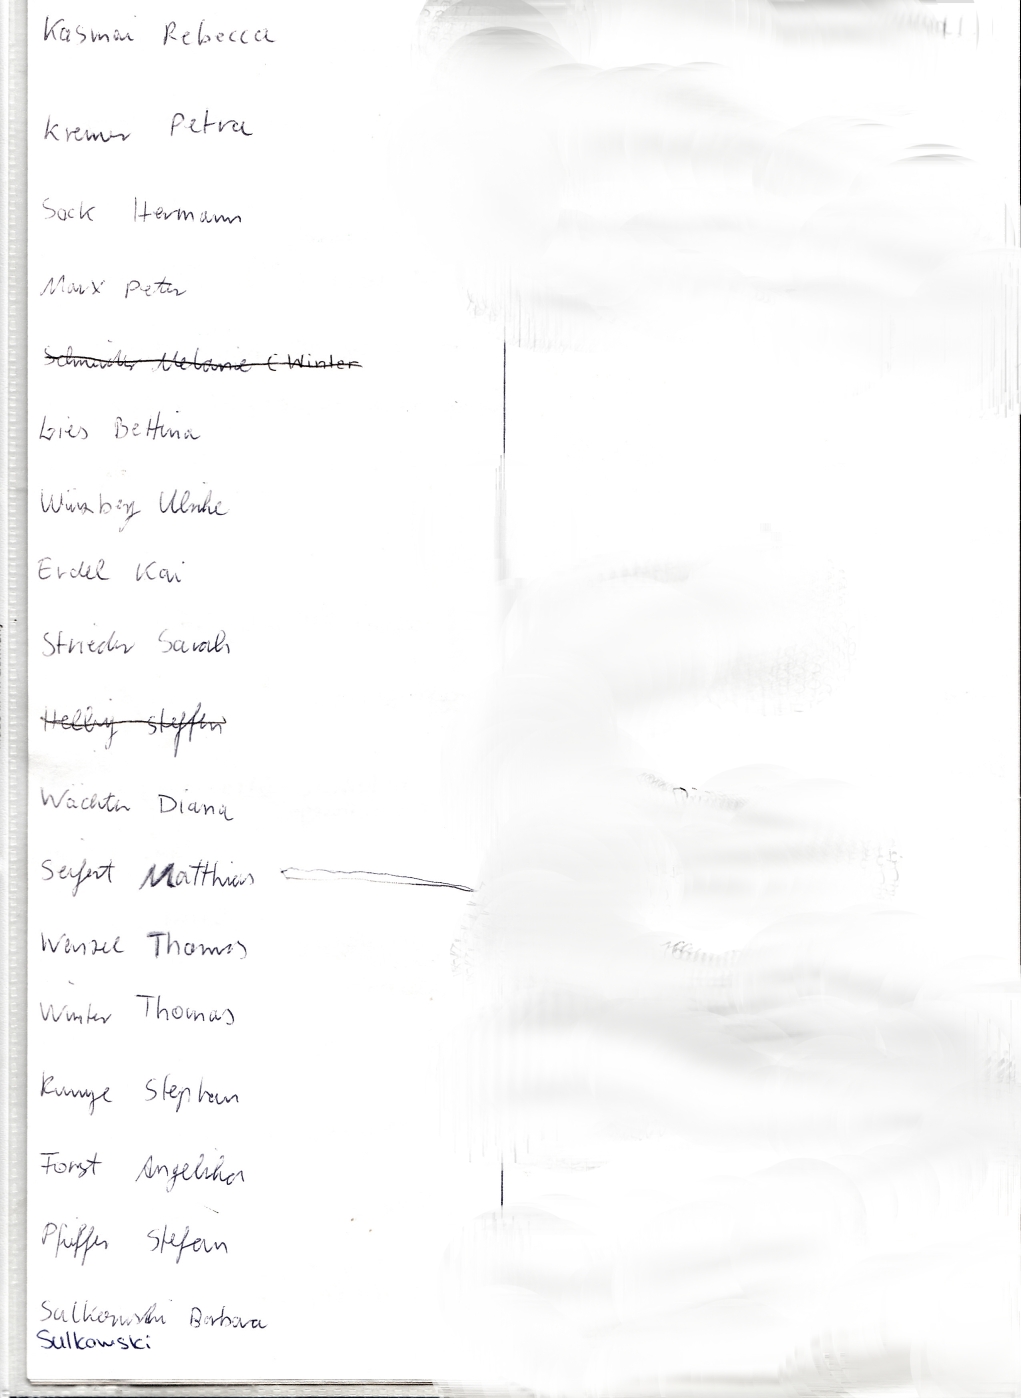 Kasmai Rebecca
Kremer Petra
Sock Hermann
Marx Peter
Melanie (Winter
Lies Bettina
Würzberg Ulrike
Erdel Kai
Strieder Sarah
Helbig Steffen
Wächter Diana
Seifert Matthias
Wenzel Thomas
Winter Thomas
Runge Stephan
Forst Angelika
Pfeiffer Stefan
Sulkowski Barbara
Sulkowski